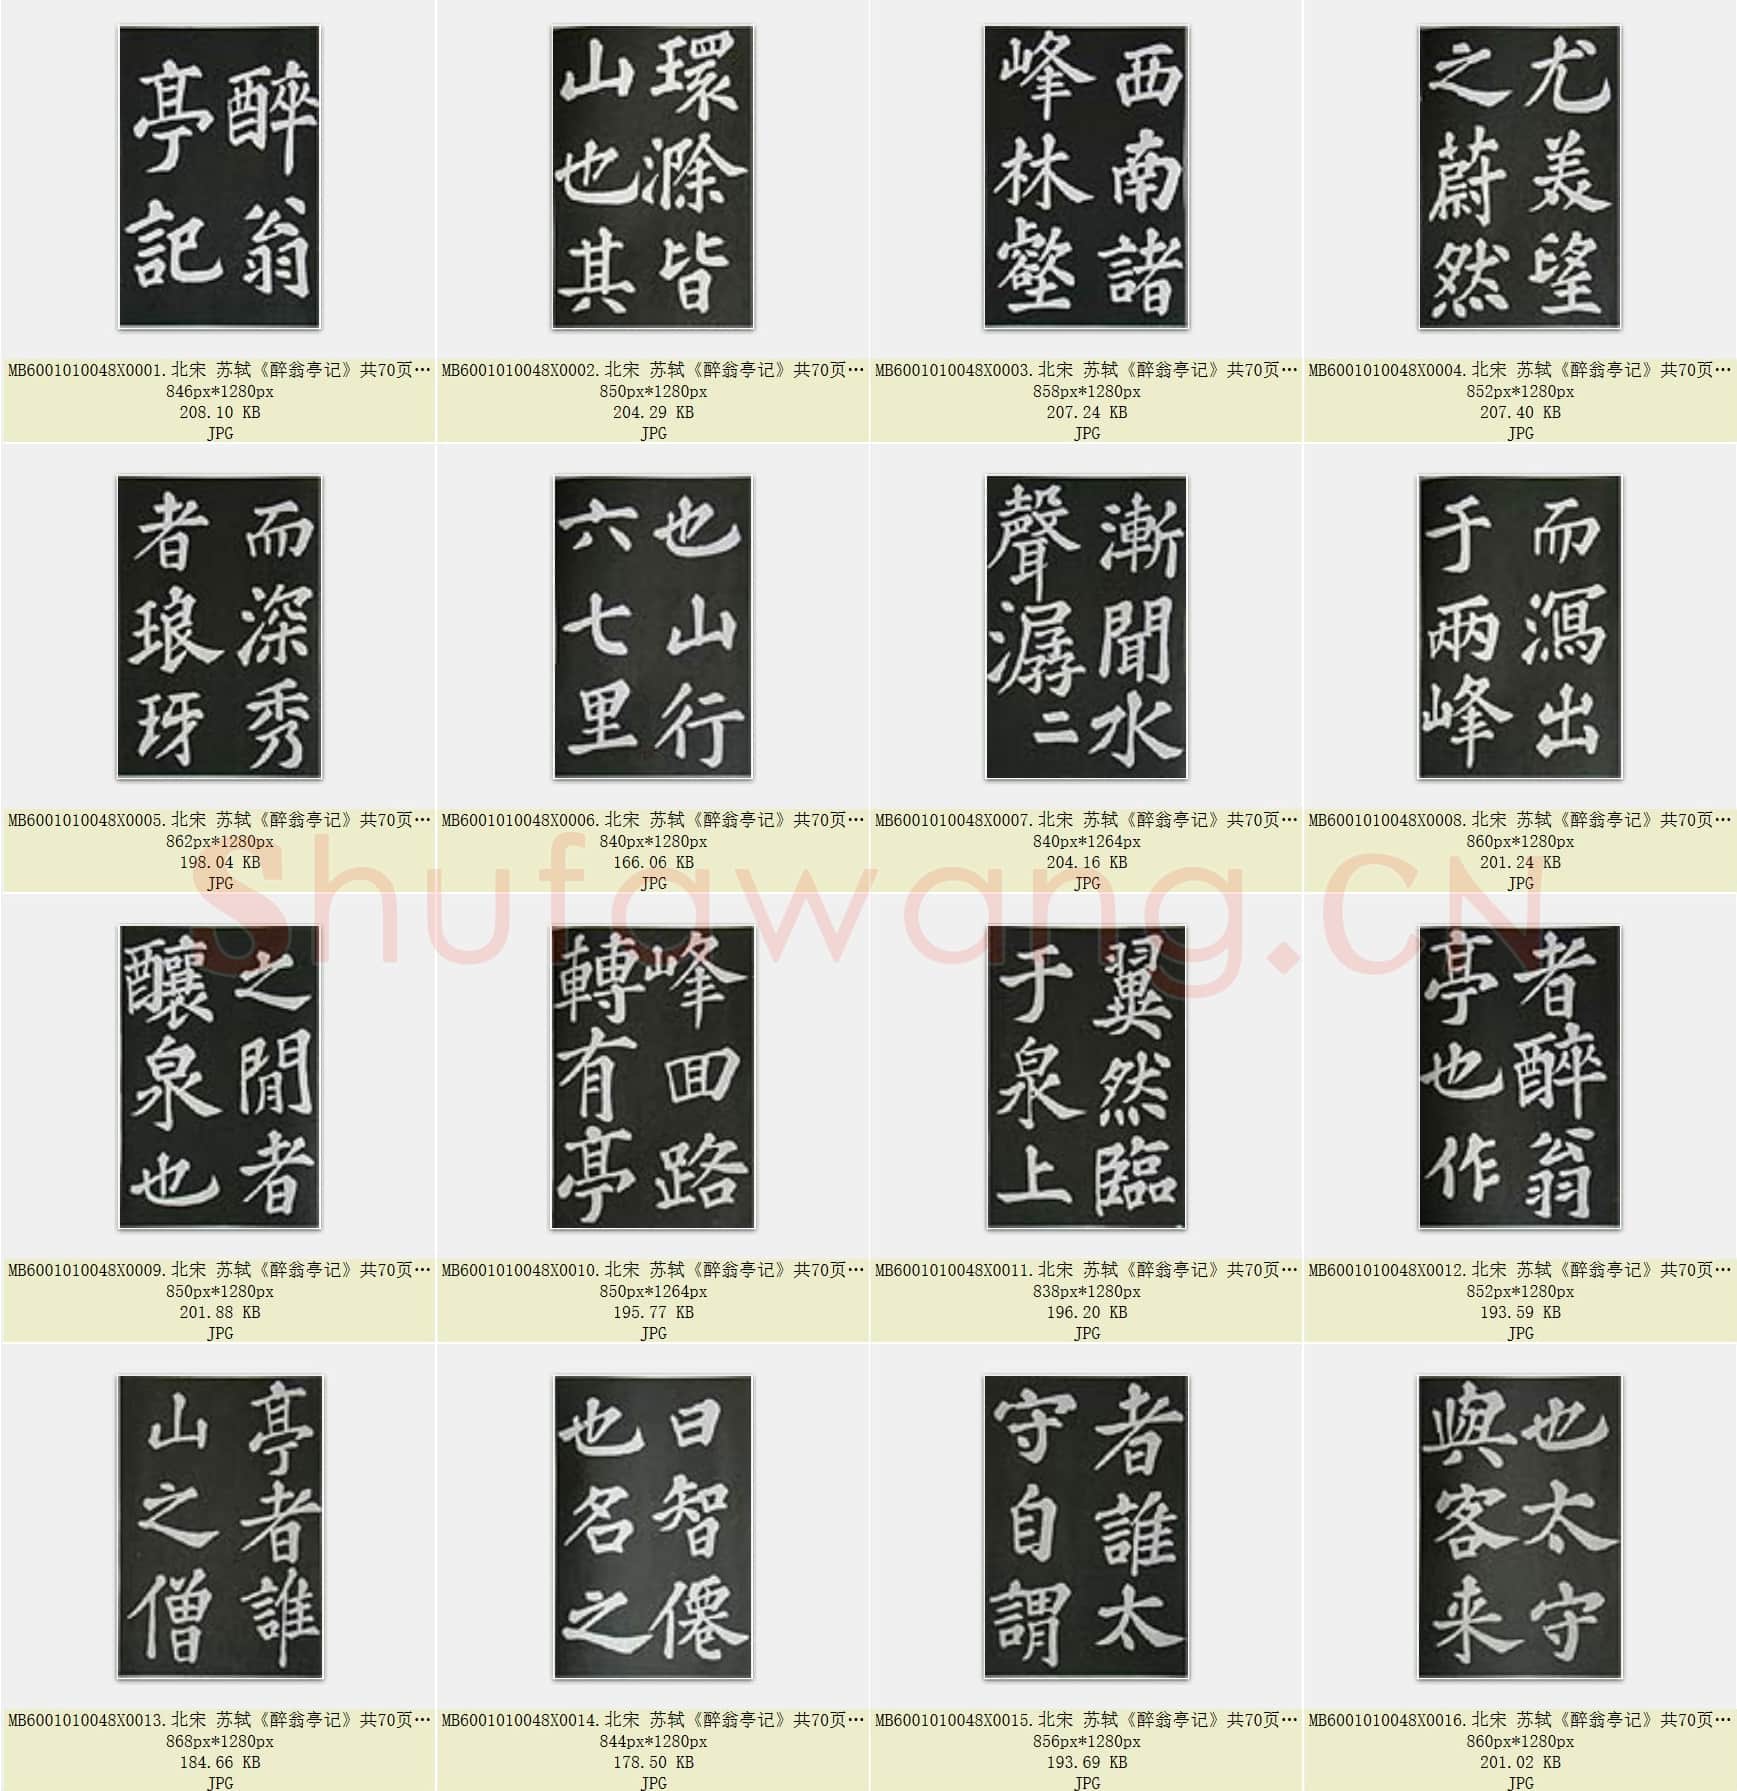 醉翁
亭記
MB6001010048X0001.北宋 苏轼《醉翁亭记》共70页…
846px*1280px
208.10 KB
JPG
環滁皆
山也其
MB6001010048X0002.北宋 苏轼《醉翁亭记》共70页…
850px*1280px
204.29 KB
JPG
西南諸
峰林壑
MB6001010048X0003.北宋 苏轼《醉翁亭记》共70页…
858px*1280px
207.24 KB
JPG
尤美望
之蔚然
MB6001010048X0004.北宋 苏轼《醉翁亭记》共70页…
852px*1280px
207.40 KB
JPG
而深秀
者琅玡
MB6001010048X0005.北宋 苏轼《醉翁亭记》共70页…
862px*1280px
198.04 KB
JPG
也山行
六七里
MB6001010048X0006.北宋 苏轼《醉翁亭记》共70页…
840px*1280px
166.06 KB
JPG
漸聞水
聲潺二
MB6001010048X0007.北宋 苏轼《醉翁亭记》共70页…
840px*1264px
204.16 KB
JPG
而瀉出
于兩峰
MB6001010048X0008.北宋 苏轼《醉翁亭记》共70页…
860px*1280px
201.24 KB
JPG
Shufawang.CN
之閒者
釀泉也
MB6001010048X0009.北宋 苏轼《醉翁亭记》共70页…
850px*1280px
201.88 KB
JPG
峰回路
轉有亭
MB6001010048X0010.北宋 苏轼《醉翁亭记》共70页…
850px*1264px
195.77 KB
JPG
翼然臨
于泉上
MB6001010048X0011.北宋 苏轼《醉翁亭记》共70页…
838px*1280px
196.20 KB
JPG
者醉翁
亭也作
MB6001010048X0012.北宋 苏轼《醉翁亭记》共70页…
852px*1280px
193.59 KB
JPG
亭者誰
山之僧
MB6001010048X0013.北宋 苏轼《醉翁亭记》共70页…
868px*1280px
184.66 KB
JPG
曰智僊
也名之
MB6001010048X0014.北宋 苏轼《醉翁亭记》共70页…
844px*1280px
178.50 KB
JPG
者誰太
守自謂
MB6001010048X0015.北宋 苏轼《醉翁亭记》共70页…
856px*1280px
193.69 KB
JPG
也太守
與客来
MB6001010048X0016.北宋 苏轼《醉翁亭记》共70页…
860px*1280px
201.02 KB
JPG